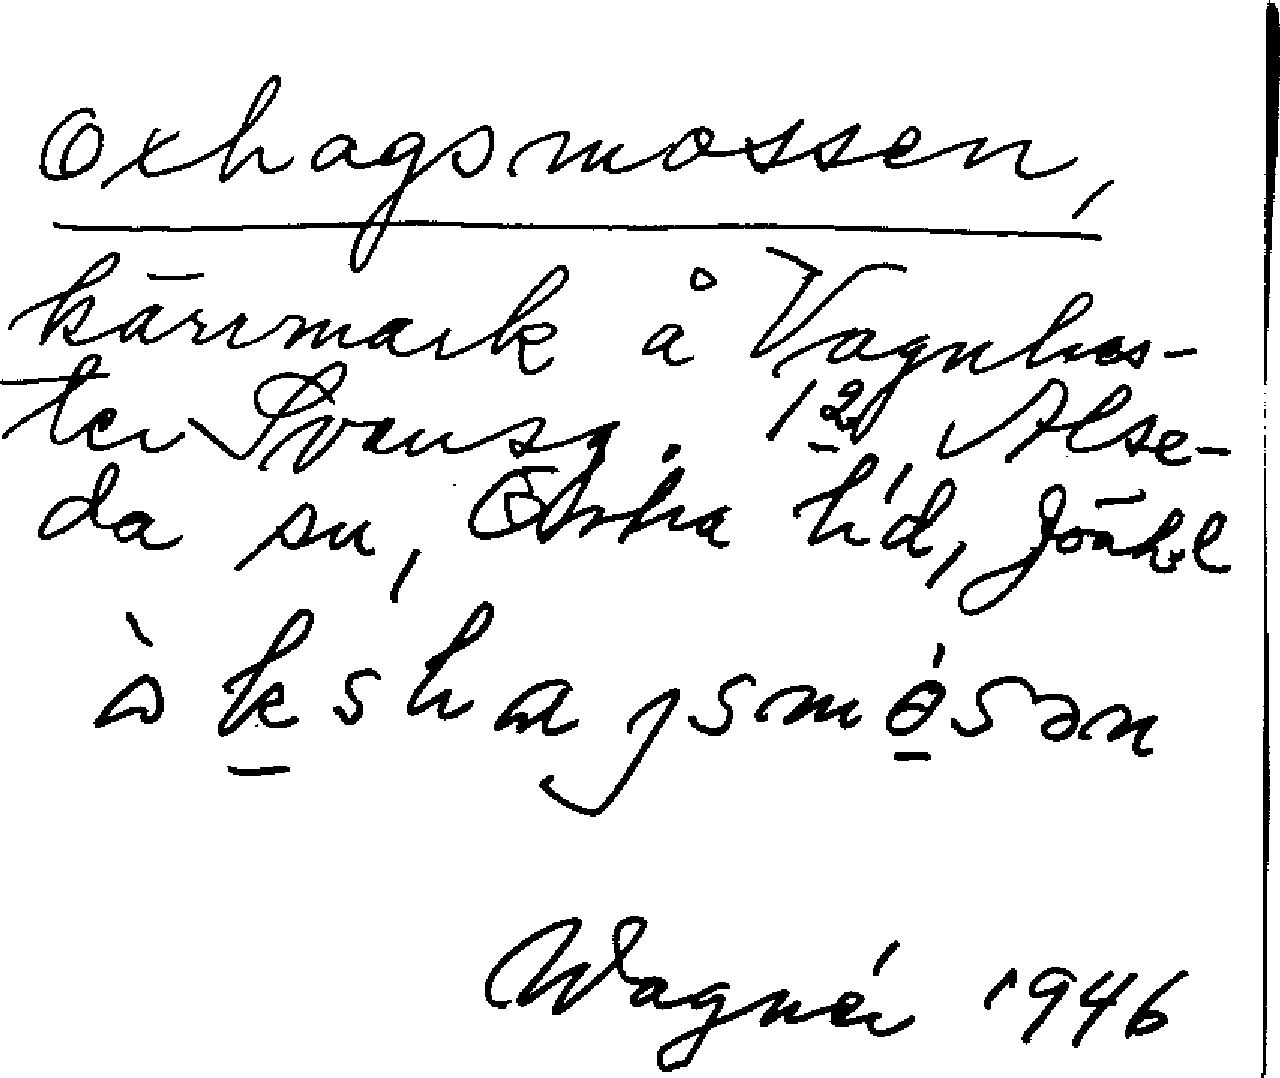 Oxhagsmossen,
kärrmark å Vagnhes-
ter Svensg. 12, Alse-
da sn, Östra hd, Jönk. l
òkshagsmósən
Wagnér 1946